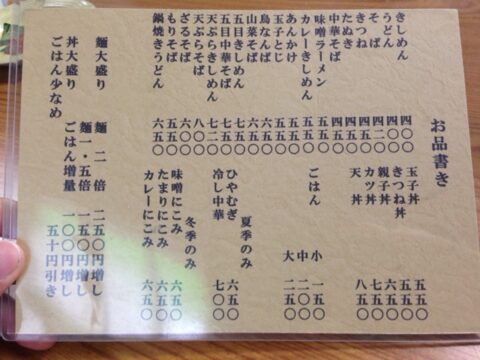 お品書き
きしめん 四〇〇
うどん 四〇〇
そば 四二〇
きつね 四五〇
たぬき 四五〇
中華そば 四五〇
味噌ラーメン 五五〇
カレーきしめん 五五〇
あんかけ 五五〇
玉子とじ 五五〇
鳥なんば
山菜そば
五目きしめん
五目中華そば
天ぷらきしめん
天ぷらそば
ざるそば 六〇〇
もりそば 五五〇
鍋焼きうどん 六五〇
玉子丼 五五〇
きつね丼 五五〇
親子丼 六五〇
カツ丼 七五〇
天丼 八五〇
ごはん
小 一五〇
中 二〇〇
大 二五〇
夏季のみ
ひやむぎ 六五〇
冷し中華 七〇〇
冬季のみ
味噌にこみ 六五〇
たまりにこみ 六五〇
カレーにこみ 六五〇
麺大盛り 麺二倍 二五〇円増し
麺一・五倍 一五〇円増し
丼大盛り ごはん増量 一〇〇円増し
ごはん少なめ 五十円引き